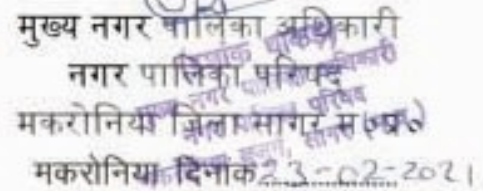 मुख्य नगर पालिका अधिकारी
नगर पालिका परिषद
मकरोनिया जिला सागर म०प्र०
मकरोनिया दिनांक 23-02-2021